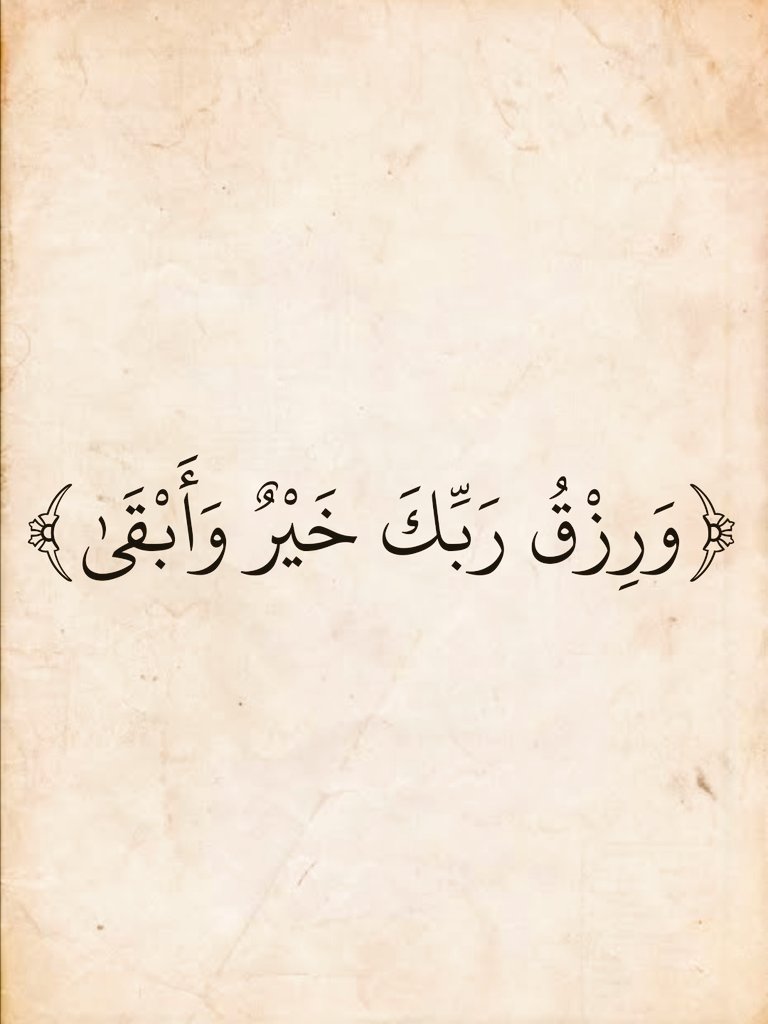 ﴿وَرِزْقُ رَبِّكَ خَيْرٌ وَأَبْقَىٰ﴾